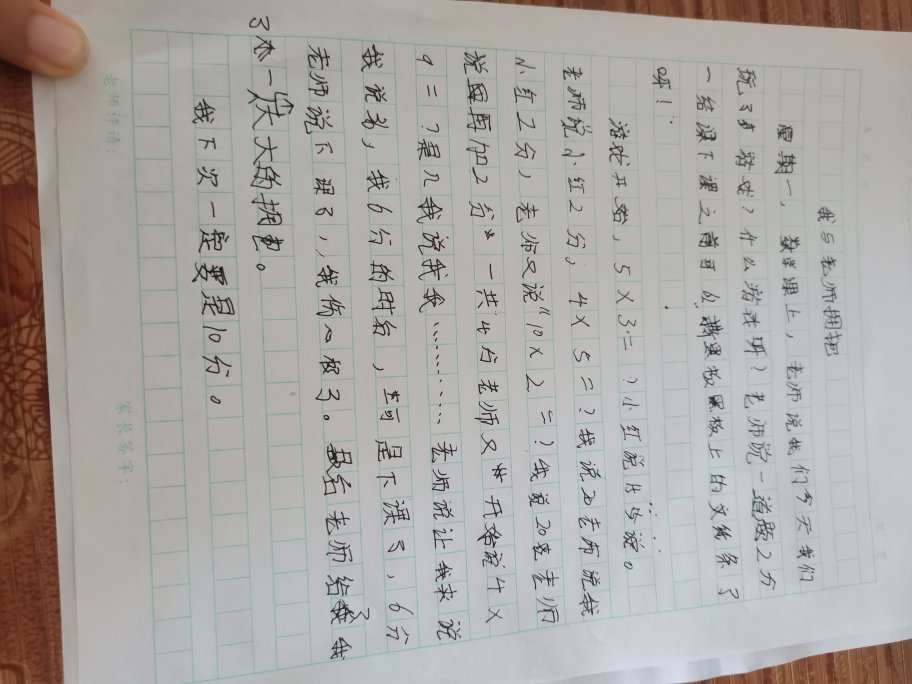 我与老师拥抱
星期一，数学课上，老师说我们今天我们
玩了个游戏？什么游戏呀？老师说一道题2分
一结课下课之前可以 黑板上的 了
呀！
游戏开始，5×3=？小红说15 说。
老师说小红2分，4×5=？我说20老师说我
小红2分，老师又说“10×2=？我说20 老师
说 再加2分 一共4分老师又 开始说4×
9=？是几我说我我………老师说让我来说
我说老，我6分的时后，可是下课了，6分
老师说下课了，我伤心极了。最后老师给了我
了 一 大大的拥包。
我下次一定要是10分。
老师评语：
家长签字：